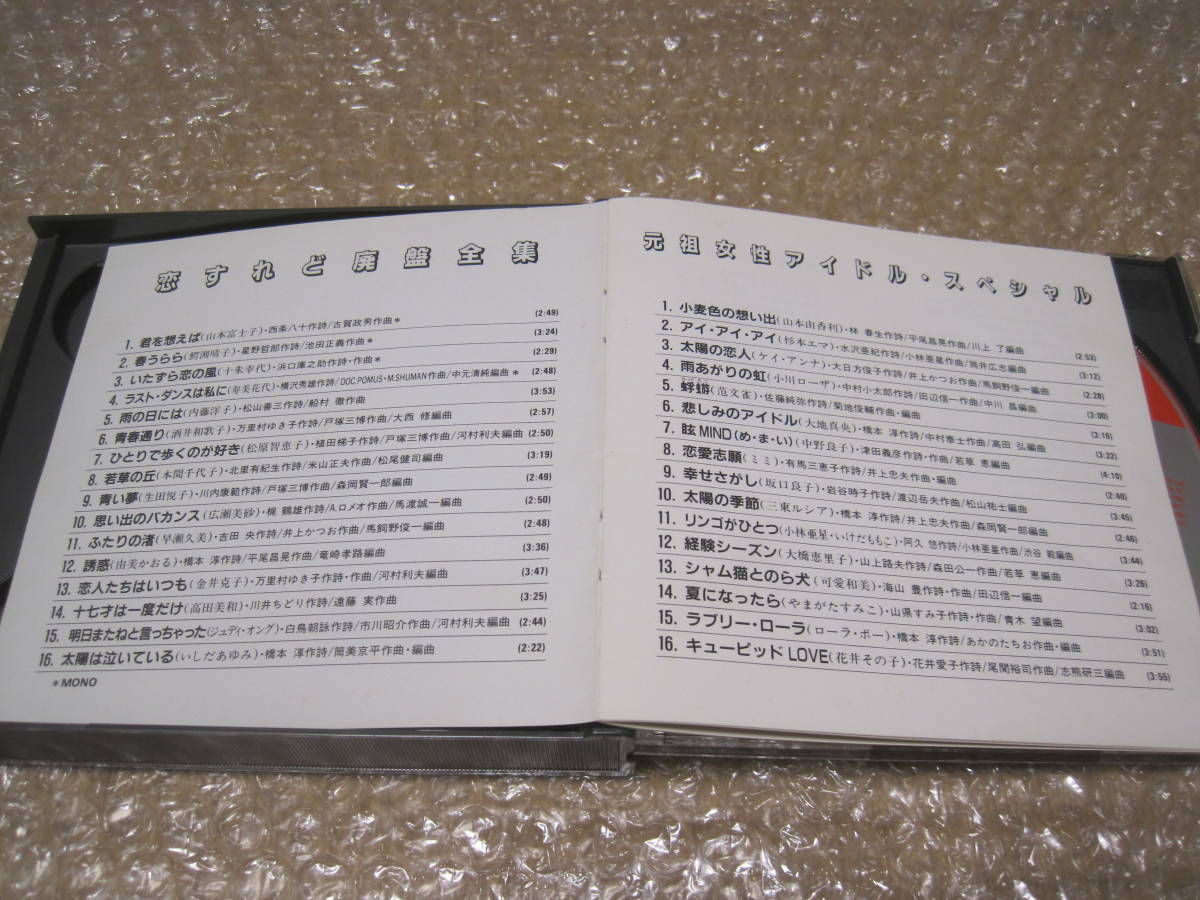 恋すれど廃盤全集
1. 君を想えば(山本富士子)・西条八十作詩/古賀政男作曲* (2:49)
2. 春うらら(鰐渕晴子)・星野哲郎作詩/池田正義作曲* (3:24)
3. いたずら恋の風(十朱幸代)・浜口庫之助作詩・作曲* (2:29)
4. ラスト・ダンスは私に(寿美花代)・横沢秀雄作詩/DOC.POMUS・M.SHUMAN作曲/中元清純編曲* (2:48)
5. 雨の日には(内藤洋子)・松山善三作詩/船村 徹作曲 (3:53)
6. 青春通り(酒井和歌子)・万里村ゆき子作詩/戸塚三博作曲/大西 修編曲 (2:57)
7. ひとりで歩くのが好き(松原智恵子)・植田梯子作詩/戸塚三博作曲/河村利夫編曲 (2:50)
8. 若草の丘(本間千代子)・北里有紀生作詩/米山正夫作曲/松尾健司編曲 (3:19)
9. 青い夢(生田悦子)・川内康範作詩/戸塚三博作曲/森岡賢一郎編曲 (2:49)
10. 思い出のバカンス(広瀬美砂)・梶 鶴雄作詩/A.ロメオ作曲/馬渡誠一編曲 (2:50)
11. ふたりの渚(早瀬久美)・吉田 央作詩/井上かつお作曲/馬飼野俊一編曲 (2:48)
12. 誘惑(由美かおる)・橋本 淳作詩/平尾昌晃作曲/竜崎孝路編曲 (3:36)
13. 恋人たちはいつも(金井克子)・万里村ゆき子作詩・作曲/河村利夫編曲 (3:47)
14. 十七才は一度だけ(高田美和)・川井ちどり作詩/遠藤 実作曲 (3:25)
15. 明日またねと言っちゃった(ジュディ・オング)・白鳥朝詠作詩/市川昭介作曲/河村利夫編曲 (2:44)
16. 太陽は泣いている(いしだあゆみ)・橋本 淳作詩/筒美京平作曲・編曲 (2:22)
*MONO
元祖女性アイドル・スペシャル
1. 小麦色の想い出(山本由香利)・林 春生作詩/平尾昌晃作曲/川上 了編曲 (2:53)
2. アイ・アイ・アイ(杉本エマ)・水沢亜紀作詩/小林亜星作曲/筒井広志編曲 (3:12)
3. 太陽の恋人(ケイ・アンナ)・大日方俊子作詩/井上かつお作曲/馬飼野俊一編曲 (2:28)
4. 雨あがりの虹(小川ローザ)・中村小太郎作詩/田辺信一作曲/中川 昌編曲 (3:00)
5. 蜉蝣(范文雀)・佐藤純弥作詩/菊地俊輔作曲・編曲 (3:16)
6. 悲しみのアイドル(大地真央)・橋本 淳作詩/中村泰士作曲/高田 弘編曲 (3:22)
7. 眩MIND(め・ま・い)(中野良子)・津田義彦作詩・作曲/若草 恵編曲 (4:10)
8. 恋愛志願(ミミ)・有馬三恵子作詩/井上忠夫作曲・編曲 (2:40)
9. 幸せさがし(坂口良子)・岩谷時子作詩/渡辺岳夫作曲/松山祐士編曲 (3:45)
10. 太陽の季節(三東ルシア)・橋本 淳作詩/井上忠夫作曲/森岡賢一郎編曲 (2:46)
11. リンゴがひとつ(小林亜星・いけだももこ)・阿久 悠作詩/小林亜星作曲/渋谷 毅編曲 (3:44)
12. 経験シーズン(大橋恵里子)・山上路夫作詩/森田公一作曲/若草 恵編曲 (3:26)
13. シャム猫とのら犬(可愛和美)・海山 豊作詩・作曲/田辺信一編曲 (2:16)
14. 夏になったら(やまがたすみこ)・山県すみ子作詩・作曲/青木 望編曲 (3:02)
15. ラブリー・ローラ(ローラ・ボー)・橋本 淳作詩/あかのたちお作曲・編曲 (3:51)
16. キューピッドLOVE(花井その子)・花井愛子作詩/尾関裕司作曲/志熊研三編曲 (3:55)